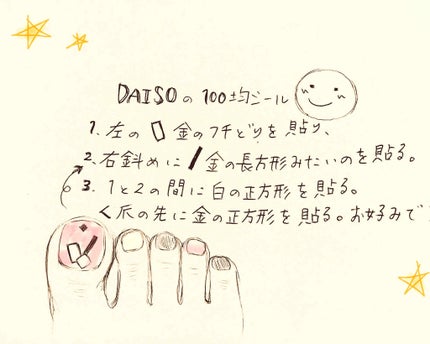 DAISOの100均シール
1. 左の▯金のフチどりを貼り、
2. 右斜めに/金の長方形みたいのを貼る。
3. 1と2の間に白の正方形を貼る。
く爪の先に金の正方形を貼る。お好みで